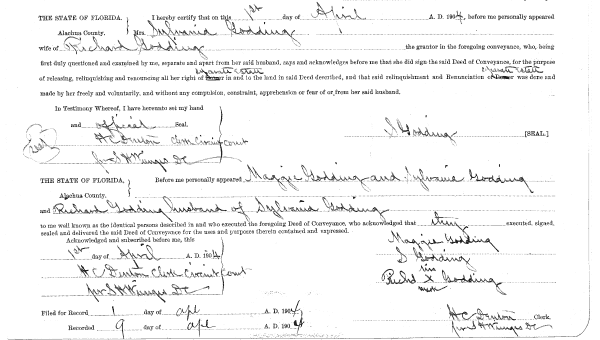 THE STATE OF FLORIDA, I hereby certify that on this 1st day of April A. D. 1904, before me personally appeared
Alachua County. Mrs. Sylvania Godding
wife of Richard Godding the grantor in the foregoing conveyance, who, being
first duly questioned and examined by me, separate and apart from her said husband, says and acknowledges before me that she did sign the said Deed of Conveyance, for the purpose
separate estate separate estate
of releasing, relinquishing and renouncing all her right of Dower in and to the land in said Deed described, and that said relinquishment and Renunciation of Dower was done and
made by her freely and voluntarily, and without any compulsion, constraint, apprehension or fear of or from her said husband.
In Testimony Whereof, I have hereunto set my hand
and official Seal.
Seal
H C Denton Clerk Circuit Court
S Godding [SEAL.]
per S H Wienges DC
THE STATE OF FLORIDA, Before me personally appeared Maggie Godding and Sylvania Godding
Alachua County.
and Richard Godding husband of Sylvania Godding
to me well known as the identical persons described in and who executed the foregoing Deed of Conveyance, who acknowledged that they executed, signed,
sealed and delivered the said Deed of Conveyance for the uses and purposes therein contained and expressed.
Acknowledged and subscribed before me, this
1st day of April A. D. 1904
H C Denton Clerk Circuit Court
per S H Wienges DC
Maggie Godding
S Godding
his
Richd X Godding
mark
Filed for Record 1 day of apl A. D. 1904
Recorded 9 day of apl A. D. 1904
H C Denton Clerk.
per S H Wienges DC